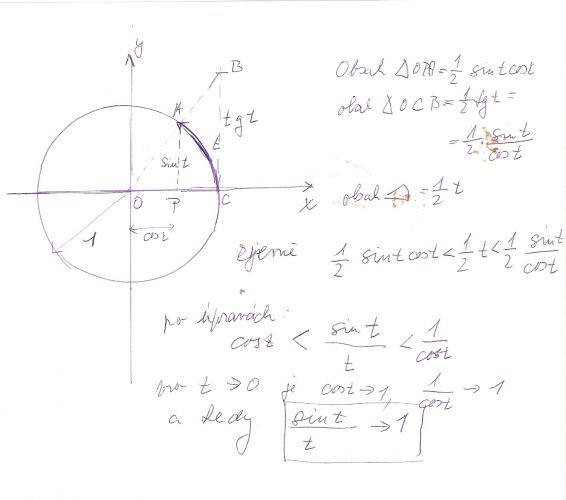 y
B
A
tg t
sin t
t
O
P
C
x
1
cos t
Obsah △OPA = 1/2 sin t cos t
obsah △OCB = 1/2 tg t =
= 1/2 sin t/cos t
obsah = 1/2 t
zjevně 1/2 sin t cos t < 1/2 t < 1/2 sin t/cos t
po úpravách:
cos t < sin t/t < 1/cos t
pro t → 0 je cos t → 1, 1/cos t → 1
a tedy sin t/t → 1